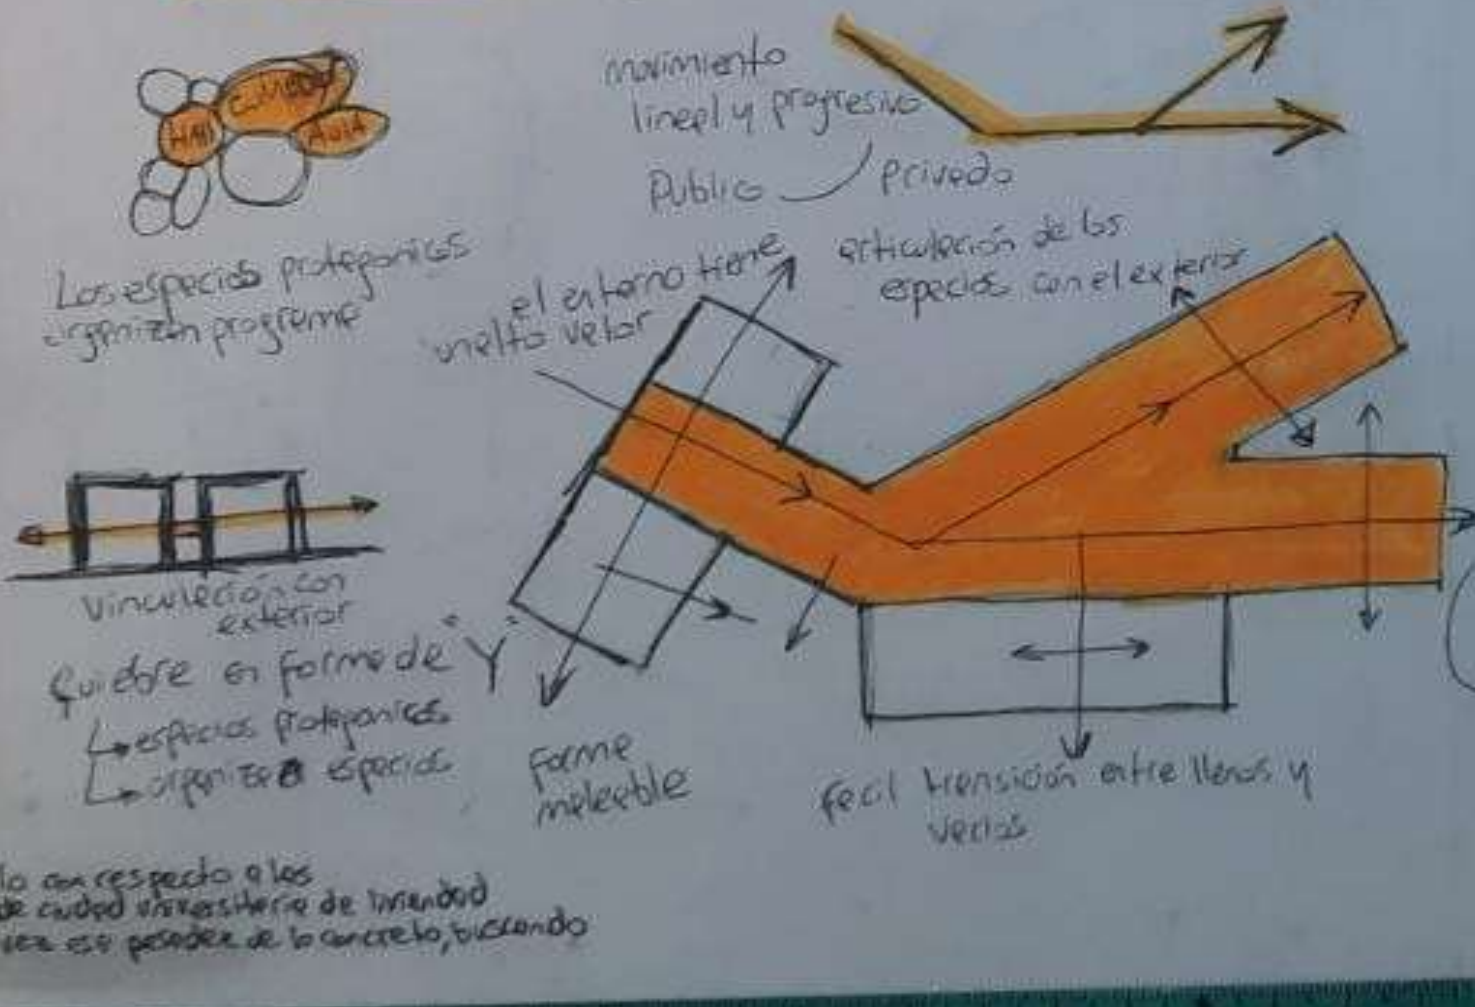 HALL
AULA
Los espacios protagonicos
organizan programa
movimiento
lineal y progresivo
Publico privado
el entorno tiene
articulación de los
espacios con el exterior
Vinculación con
exterior
Quiebre en forma de "Y"
espacios protagonicos
organiza espacios
forma
maleable
facil transición entre llenos y
vacios
lo con respecto a los
de ciudad universitaria de
vez esa pesadez de lo concreto, buscando